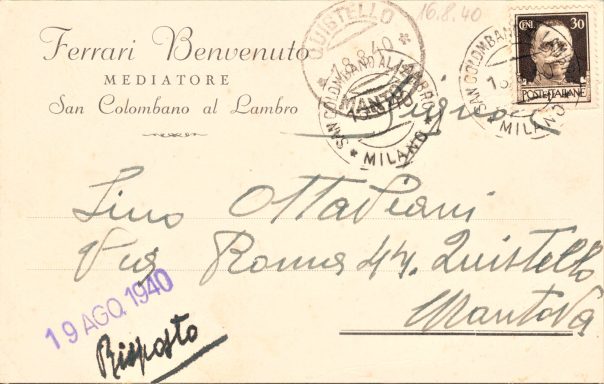 16.8.40
Ferrari Benvenuto
MEDIATORE
San Colombano al Lambro
QUISTELLO
18.8.40
MANTOVA
SAN COLOMBANO AL LAMBRO
MILANO
SAN COLOMBANO AL LAMBRO
MILANO
CENT. 30
POSTE ITALIANE
Signor
Lino Ottaviani
Via Roma 44. Quistello
Mantova
19 AGO. 1940
Risposto